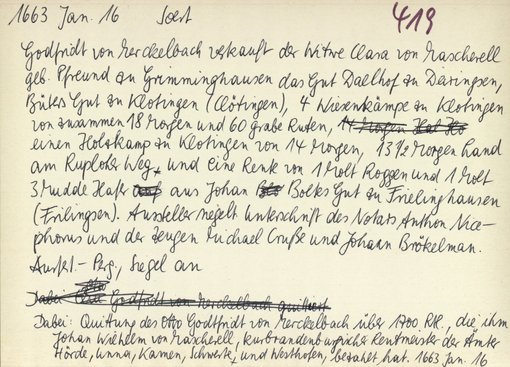 1663 Jan. 16 Soest 419
Godfridt von Merckelbach verkauft der Witwe Clara von Mascherell
geb. Pfreund zu Grimminghausen das Gut Daelhof zu Deiringsen,
Büters Gut zu Klotingen (Clötingen), 4 Wiesenkämpe zu Klotingen
von zusammen 18 Morgen und 60 grabe Ruten,
einen Holzkamp zu Klotingen von 14 Morgen, 13 1/2 Morgen Land
am Ruploher Weg, und eine Rente von 1 Molt Roggen und 1 Molt
3 Mudde Hafer aus Johan Boltes Gut zu Frielinghausen
(Frilingsen). Aussteller siegelt Unterschrift des Notars Anthon Nice-
phorus und der Zeugen Michael Cruße und Johann Brökelman.
Ausf. - Perg, Siegel an
Dabei: Godtfridt von Merckelbach quittiert
Dabei: Quittung des Otto Godtfridt von Merckelbach über 1700 Rtl., die ihm
Johan Wilhelm von Mascherell, kurbrandenburgischer Rentmeister der Ämter
Hörde, Unna, Kamen, Schwerte, und Westhofen, bezahlt hat. 1663 Jan. 16